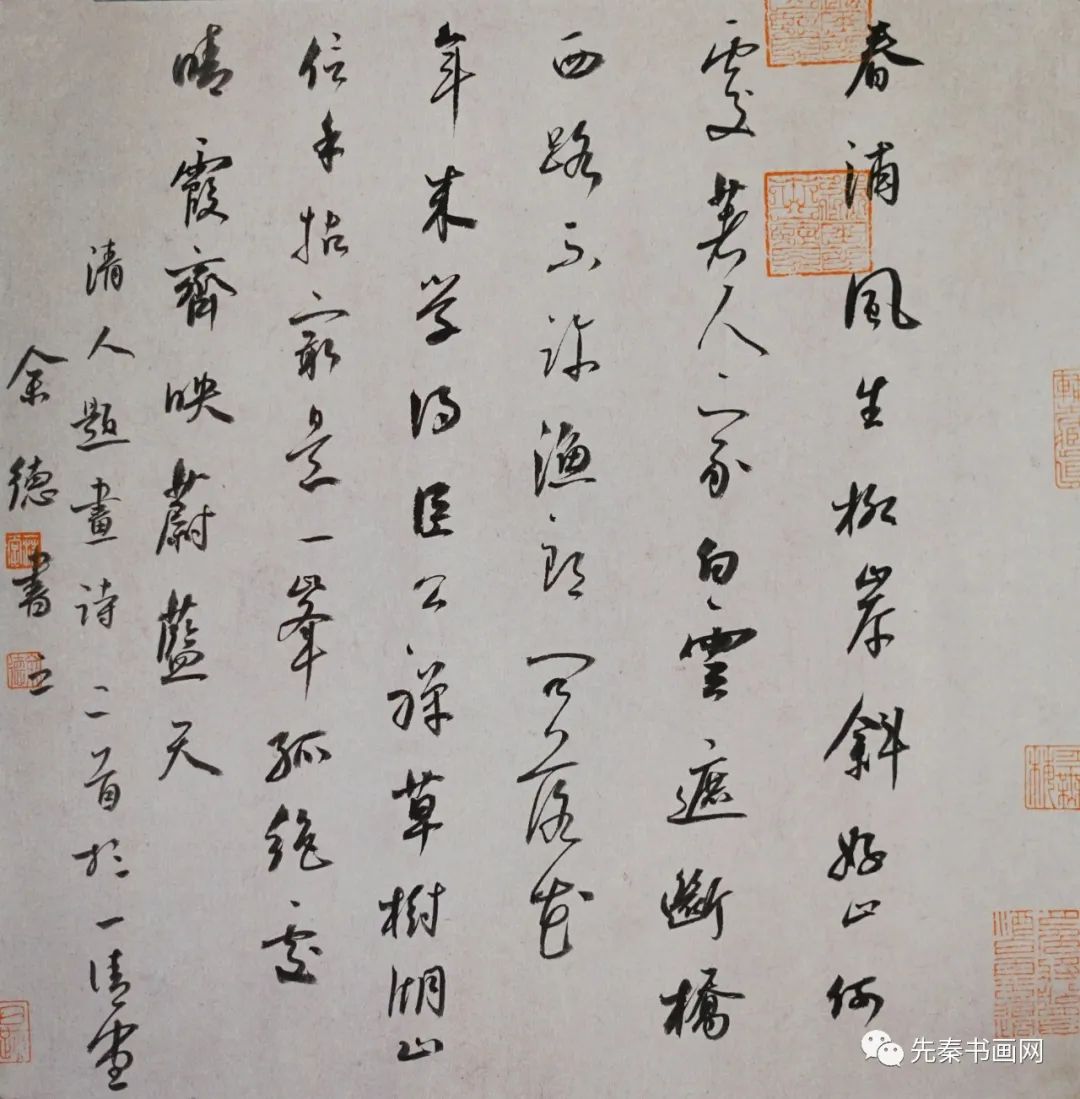 春浦風生柳岸斜好山何
處著人家白雲遮斷橋
西路不許漁郎問落花
年來學得巨公禪草樹湖山
信手拈最是一峯孤絕處
晴霞齊映蔚藍天
清人題畫詩二首於一清堂
余德書之
先秦书画网